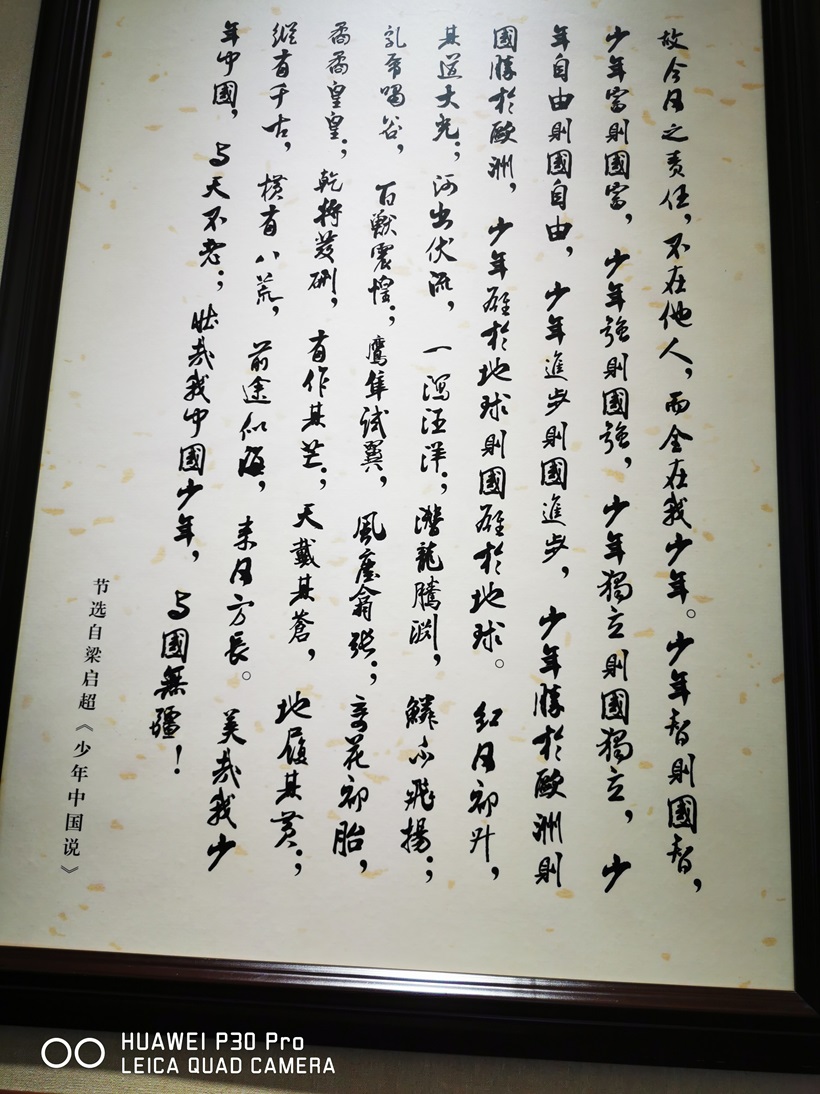 故今日之責任，不在他人，而全在我少年。少年智則國智，
少年富則國富，少年強則國強，少年獨立則國獨立，少
年自由則國自由，少年進步則國進步，少年勝於歐洲則
國勝於歐洲，少年雄於地球則國雄於地球。紅日初升，
其道大光；河出伏流，一瀉汪洋；潛龍騰淵，鱗爪飛揚；
乳虎嘯谷，百獸震惶；鷹隼試翼，風塵翕張；奇花初胎，
矞矞皇皇；乾將發硎，有作其芒；天戴其蒼，地履其黃；
縱有千古，橫有八荒，前途似海，來日方長。美哉我少
年中國，与天不老；壯哉我中國少年，与國無疆！
节选自梁启超《少年中国说》
HUAWEI P30 Pro
LEICA QUAD CAMERA